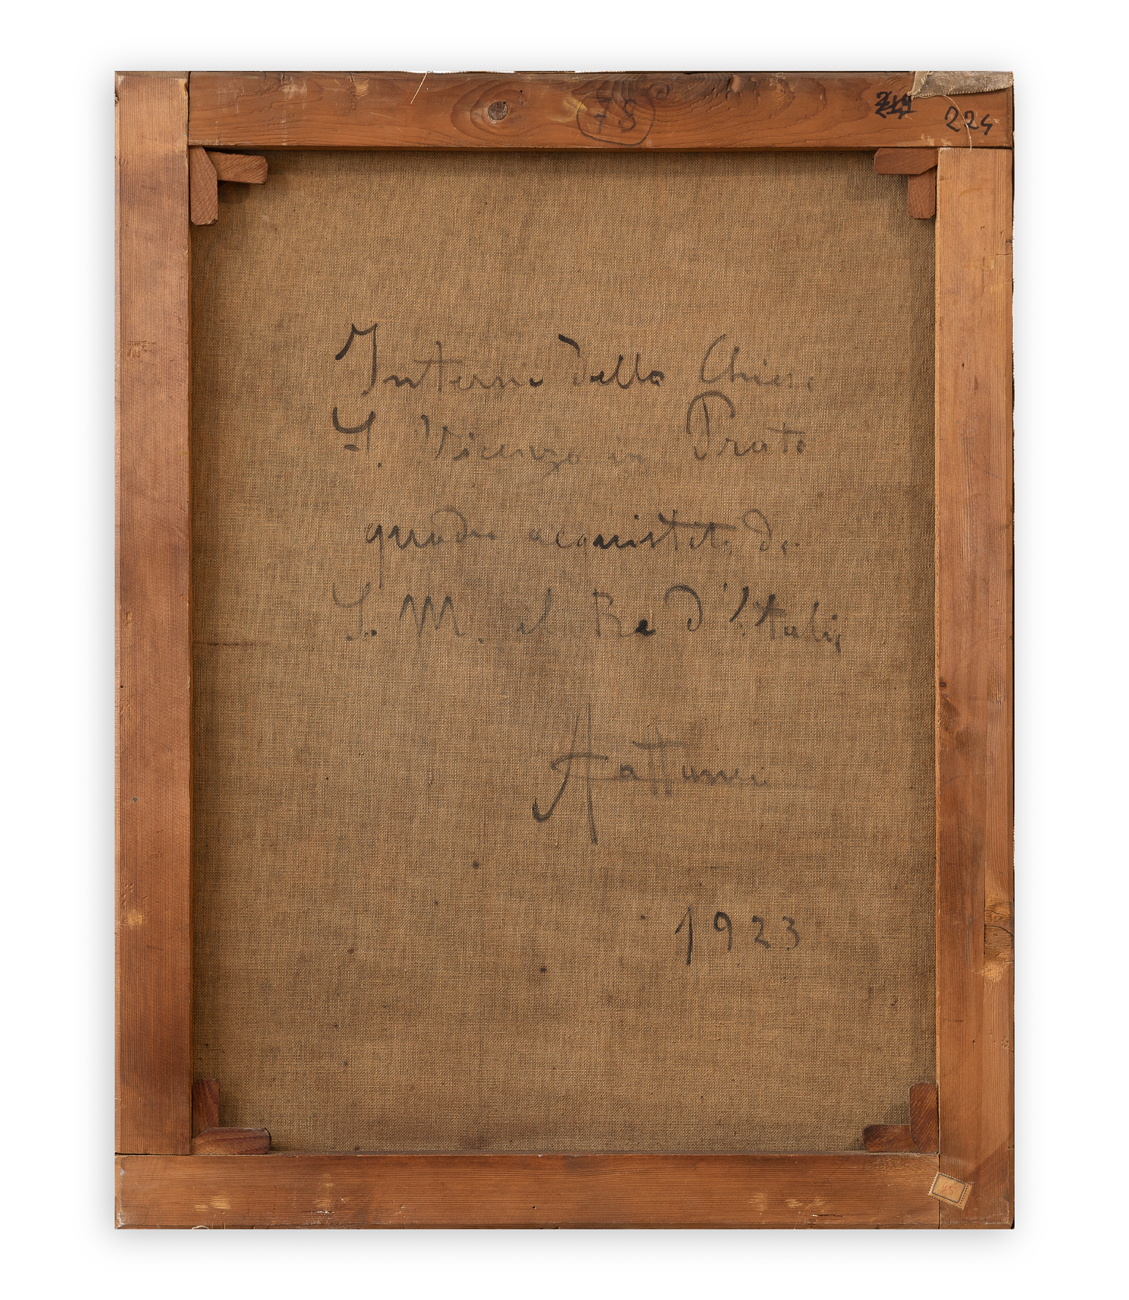 78
224
Interno della Chiesa
S. Vicenzo in Prato
quadro acquistato da
S. M. il Re d'Italia
1923